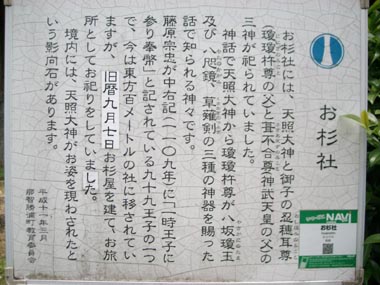 お杉社
お杉社には、天照大神と御子の忍穂耳尊
(瓊瓊杵尊の父)と葺不合尊(神武天皇の父)の
三神が祀られていました。
神話で天照大神から瓊瓊杵尊が八坂瓊玉
及び八咫鏡、草薙剣の三種の神器を賜った
話で知られる神々です。
藤原宗忠が中右記(一一〇九年)に「一時王子に
参り奉幣」と記されている九十九王子の一つ
で、今は東方百メートルの社に移されてい
ますが、旧暦九月七日お杉屋を建て、お旅
所としてお祀りをしていました。
境内には、天照大神がお姿を現わされたと
いう影向石があります。
平成十一年三月
那智勝浦町教育委員会
NAVI
お杉社